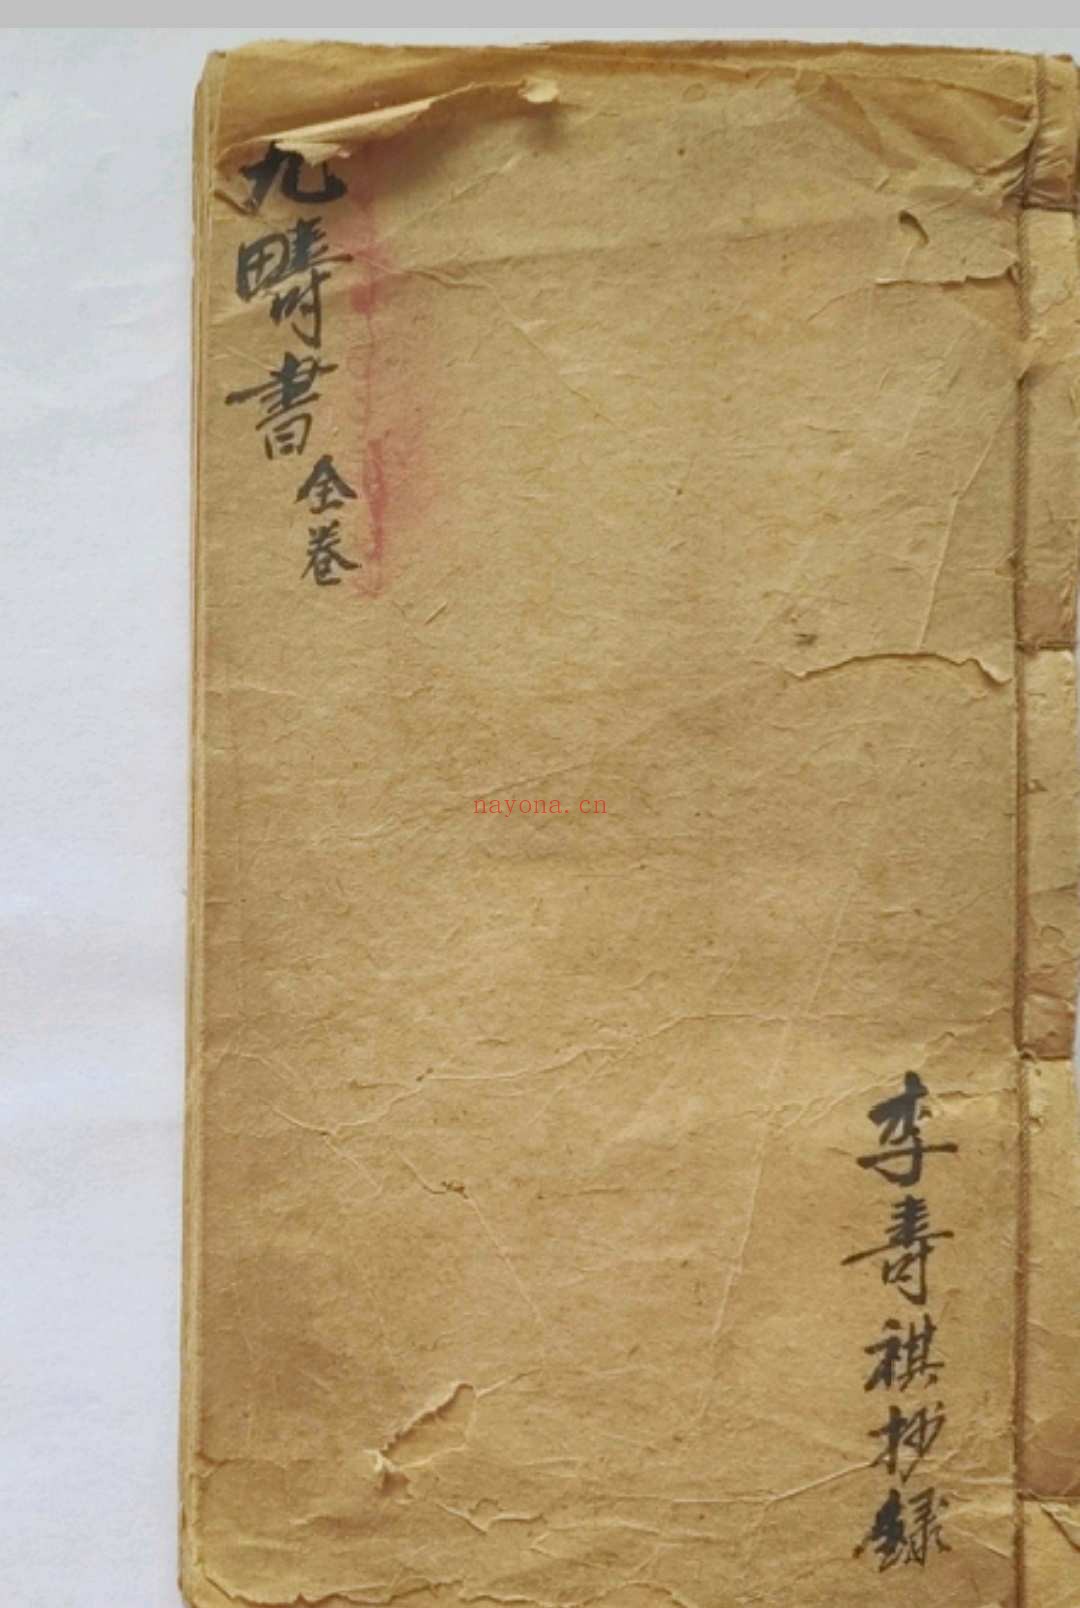 九疇書
全卷
李壽祺抄錄
nayona.cn